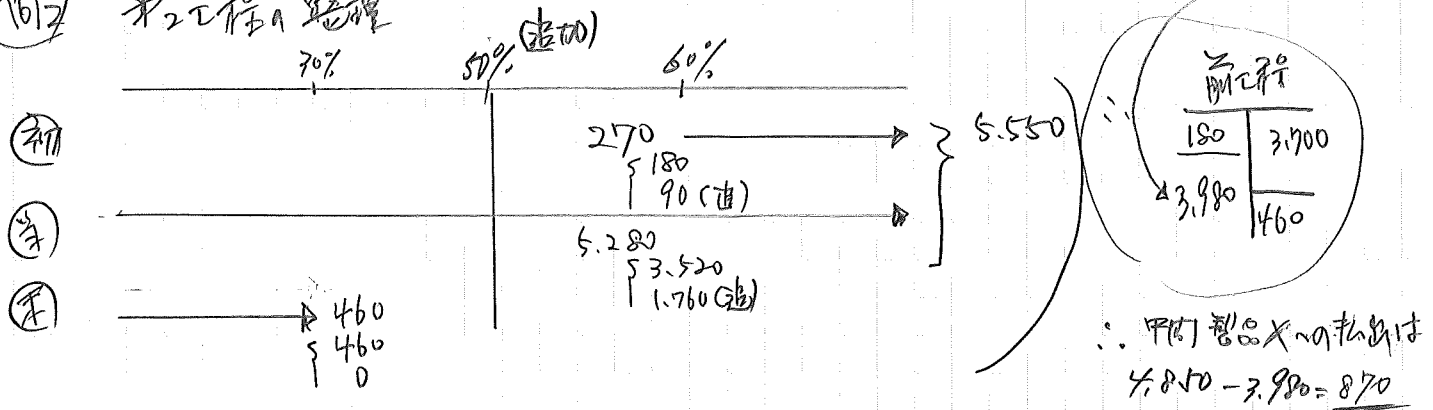 第2工程の整理
30% 50% (追加) 60%
初 270
180
90 (追)
当 5.280
3.520
1.760 (追)
末 460
460
0
5.550
∴
前工程
180 3,700
3,980 460
∴ 中間製品Xへの払出は
4,850 - 3,980 = 870